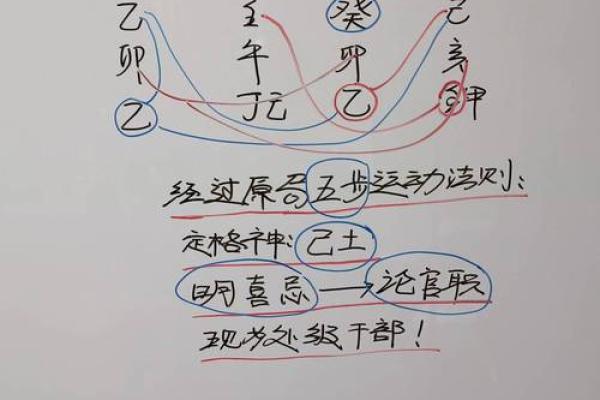 乙 壬 癸 己
卯 午 卯 亥
乙 丁己 乙 壬甲
经过原局五步运动法则:
定格神:己土
明喜忌→论官职
现为处级干部!